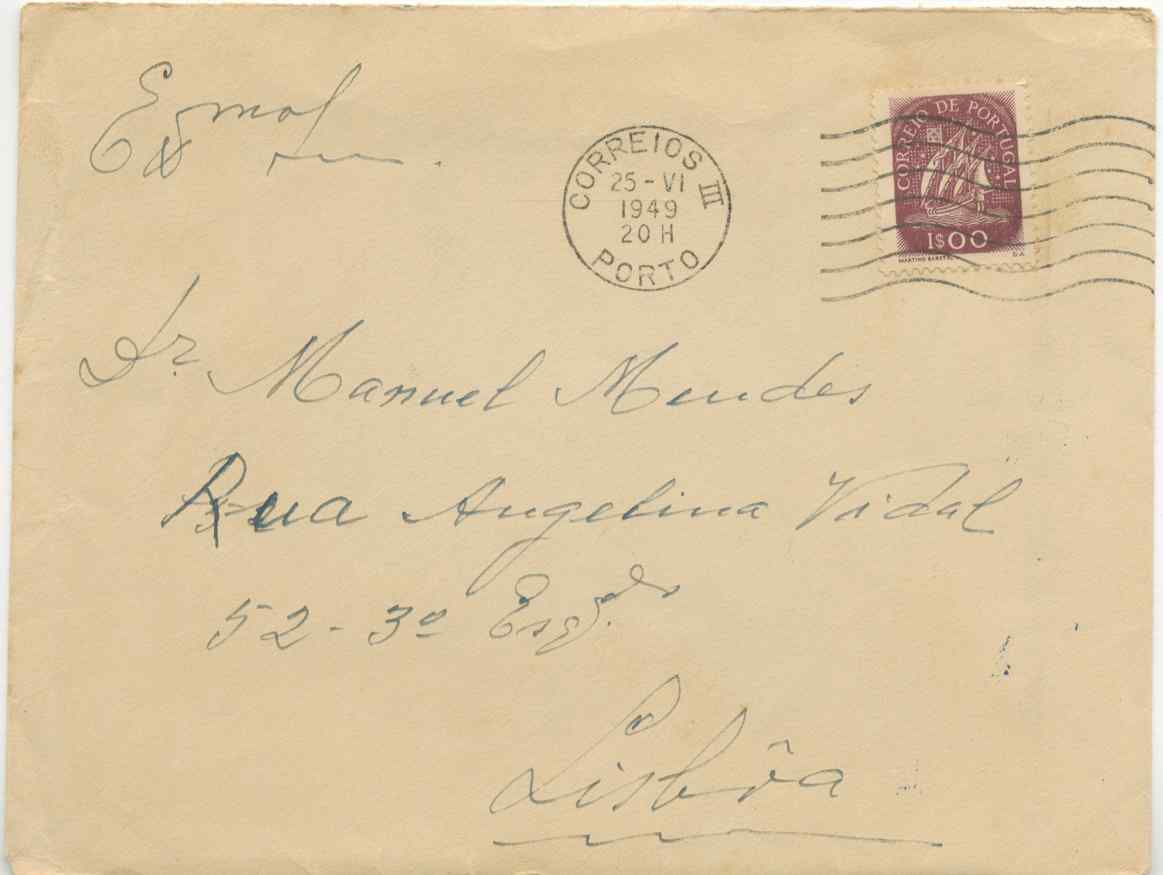 Exmo
Sr.
CORREIOS III
25-VI
1949
20 H
PORTO
CORREIO DE PORTUGAL
1$00
MARTINS BARATA
Dr. Manuel Mendes
Rua Angelina Vidal
52-3º Esqdo.
Lisbôa